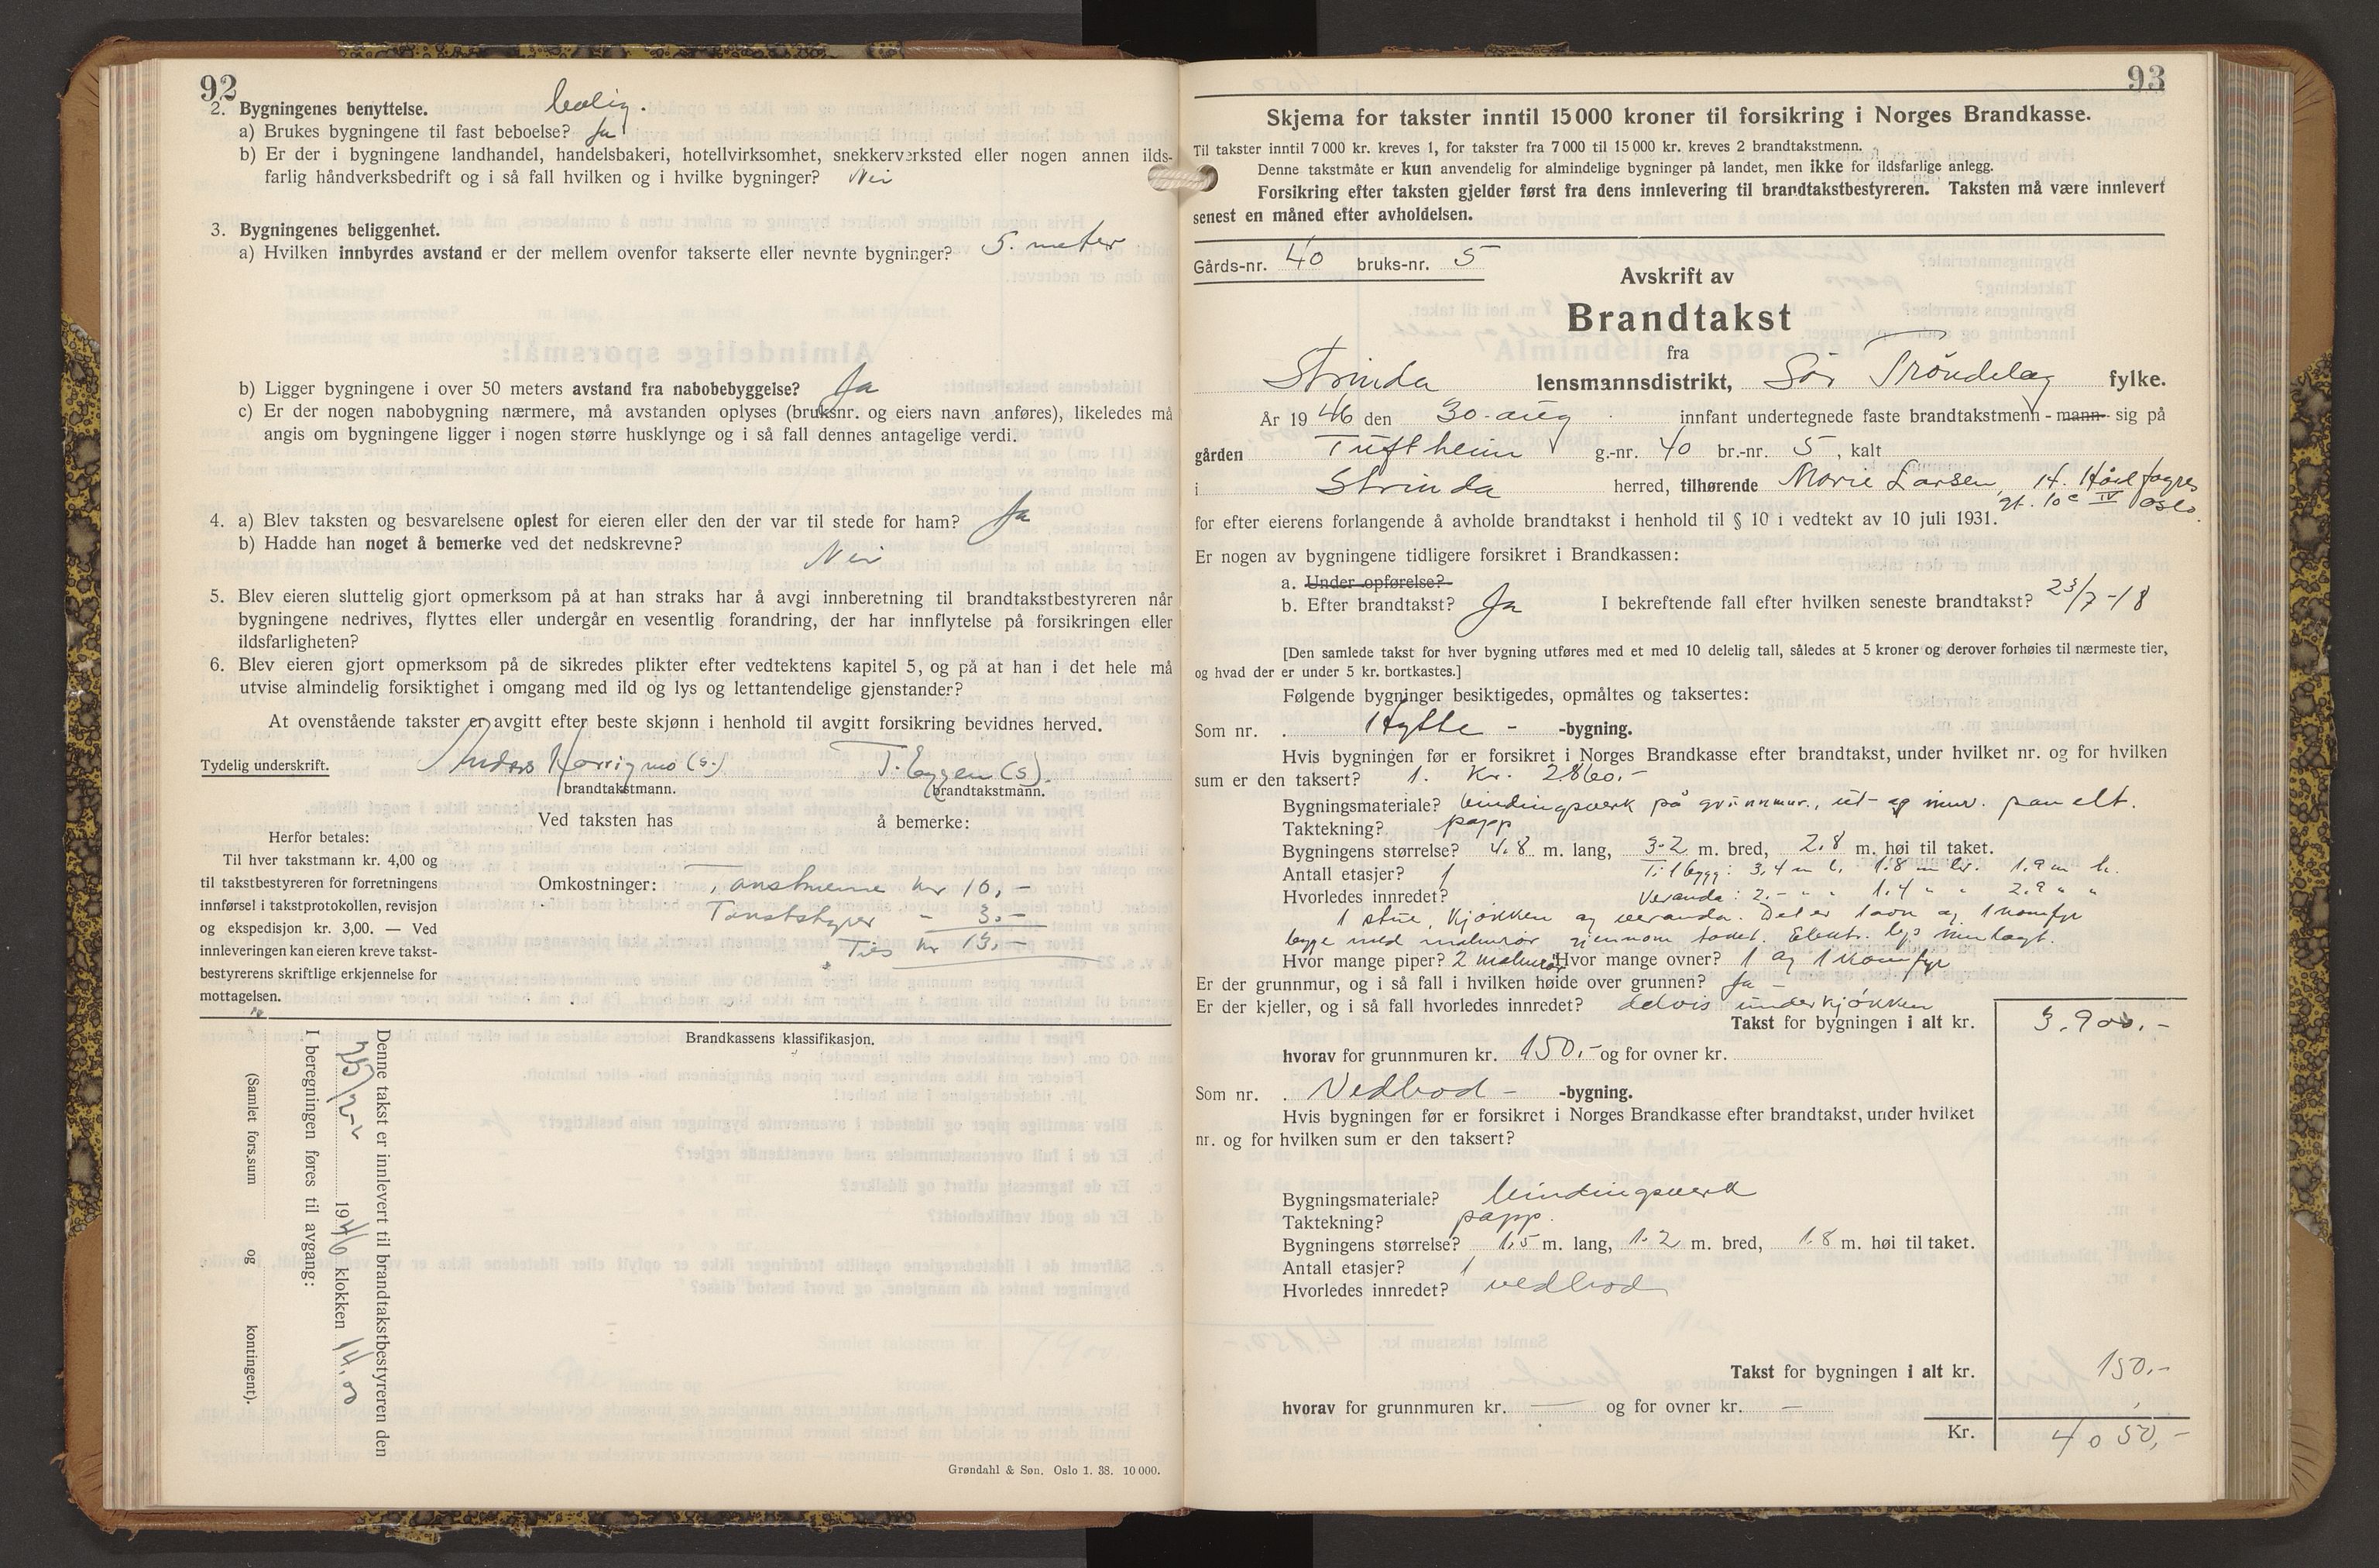 92
2. Bygningenes benyttelse. bolig.
a) Brukes bygningene til fast beboelse? Ja
b) Er der i bygningene landhandel, handelsbakeri, hotellvirksomhet, snekkerverksted eller nogen annen ilds-
farlig håndverksbedrift og i så fall hvilken og i hvilke bygninger? Nei
3. Bygningenes beliggenhet.
a) Hvilken innbyrdes avstand er der mellem ovenfor takserte eller nevnte bygninger? 5. meter
b) Ligger bygningene i over 50 meters avstand fra nabobebyggelse? Ja
c) Er der nogen nabobygning nærmere, må avstanden oplyses (bruksnr. og eiers navn anføres), likeledes må
angis om bygningene ligger i nogen større husklynge og i så fall dennes antagelige verdi.
4. a) Blev taksten og besvarelsene oplest for eieren eller den der var til stede for ham? Ja
b) Hadde han noget å bemerke ved det nedskrevne? Nei
5. Blev eieren sluttelig gjort opmerksom på at han straks har å avgi innberetning til brandtakstbestyreren når
bygningene nedrives, flyttes eller undergår en vesentlig forandring, der har innflytelse på forsikringen eller
ildsfarligheten?
6. Blev eieren gjort opmerksom på de sikredes plikter efter vedtektens kapitel 5, og på at han i det hele må
utvise almindelig forsiktighet i omgang med ild og lys og lettantendelige gjenstander?
At ovenstående takster er avgitt efter beste skjønn i henhold til avgitt forsikring bevidnes herved.
Tydelig underskrift. Anders (s.) T. Eggen (s).
brandtakstmann. brandtakstmann.
Ved taksten has å bemerke:
Herfor betales:
Til hver takstmann kr. 4,00 og
til takstbestyreren for forretningens
innførsel i takstprotokollen, revisjon
og ekspedisjon kr. 3,00. — Ved
innleveringen kan eieren kreve takst-
bestyrerens skriftlige erkjennelse for
mottagelsen.
Omkostninger: kr 10,-
- 3.-
kr 13,-
Brandkassens klassifikasjon.
Denne takst er innlevert til brandtakstbestyreren den
1946 klokken 14.00
I beregningen føres til avgang:
(Samlet fors.sum og kontingent).
Grøndahl & Søn. Oslo 1. 38. 10 000.
93
Skjema for takster inntil 15 000 kroner til forsikring i Norges Brandkasse.
Til takster inntil 7 000 kr. kreves 1, for takster fra 7 000 til 15 000 kr. kreves 2 brandtakstmenn.
Denne takstmåte er kun anvendelig for almindelige bygninger på landet, men ikke for ildsfarlige anlegg.
Forsikring efter taksten gjelder først fra dens innlevering til brandtakstbestyreren. Taksten må være innlevert
senest en måned efter avholdelsen.
Gårds-nr. 40 bruks-nr. 5
Avskrift av
Brandtakst
fra
Strinda lensmannsdistrikt, Sør Trøndelag fylke.
År 1946 den 30. aug innfant undertegnede faste brandtakstmenn - mann sig på
gården Tuftheim g.-nr. 40 br.-nr. 5, kalt
i Strinda herred, tilhørende Marie Larsen, H. Hårfagres
gt. 10c IV Oslo.
for efter eierens forlangende å avholde brandtakst i henhold til § 10 i vedtekt av 10 juli 1931.
Er nogen av bygningene tidligere forsikret i Brandkassen:
a. Under opførelse?
b. Efter brandtakst? Ja I bekreftende fall efter hvilken seneste brandtakst? 23/7-18
[Den samlede takst for hver bygning utføres med et med 10 delelig tall, således at 5 kroner og derover forhøies til nærmeste tier,
og hvad der er under 5 kr. bortkastes.]
Følgende bygninger besiktigedes, opmåltes og taksertes:
Som nr. Hytte - -bygning.
Hvis bygningen før er forsikret i Norges Brandkasse efter brandtakst, under hvilket nr. og for hvilken
sum er den taksert? 1. Kr. 2860.-
Bygningsmateriale? bindingsverk på grunnmur., ut- og innv. panelt.
Taktekning? papp
Bygningens størrelse? 4.8 m. lang, 3-2 m. bred, 2.8 m. høi til taket.
Antall etasjer? 1 Tilbygg: 3,4 m l. 1.8 m br. 1.9 m h.
Hvorledes innredet? Veranda: 2,- " " 1.4 " " 2.9 " "
1 stue, kjøkken og veranda. Det er 1 ovn og 1 komfyr
begge med malmrør gjennom taket. Elektr. lys innlagt.
Hvor mange piper? 2 malmrør Hvor mange ovner? 1 og 1 komfyr
Er der grunnmur, og i så fall i hvilken høide over grunnen? Ja
Er der kjeller, og i så fall hvorledes innredet? delvis under kjøkken
Takst for bygningen i alt kr. 3.900,-
hvorav for grunnmuren kr. 150.- og for ovner kr.
Som nr. Vedbod - -bygning.
Hvis bygningen før er forsikret i Norges Brandkasse efter brandtakst, under hvilket
nr. og for hvilken sum er den taksert?
Bygningsmateriale? bindingsverk
Taktekning? papp.
Bygningens størrelse? 1,5 m. lang, 1.2 m. bred, 1.8 m. høi til taket.
Antall etasjer? 1
Hvorledes innredet? vedbod
Takst for bygningen i alt kr. 150,-
hvorav for grunnmuren kr. — og for ovner kr. —
Kr. 4050,-